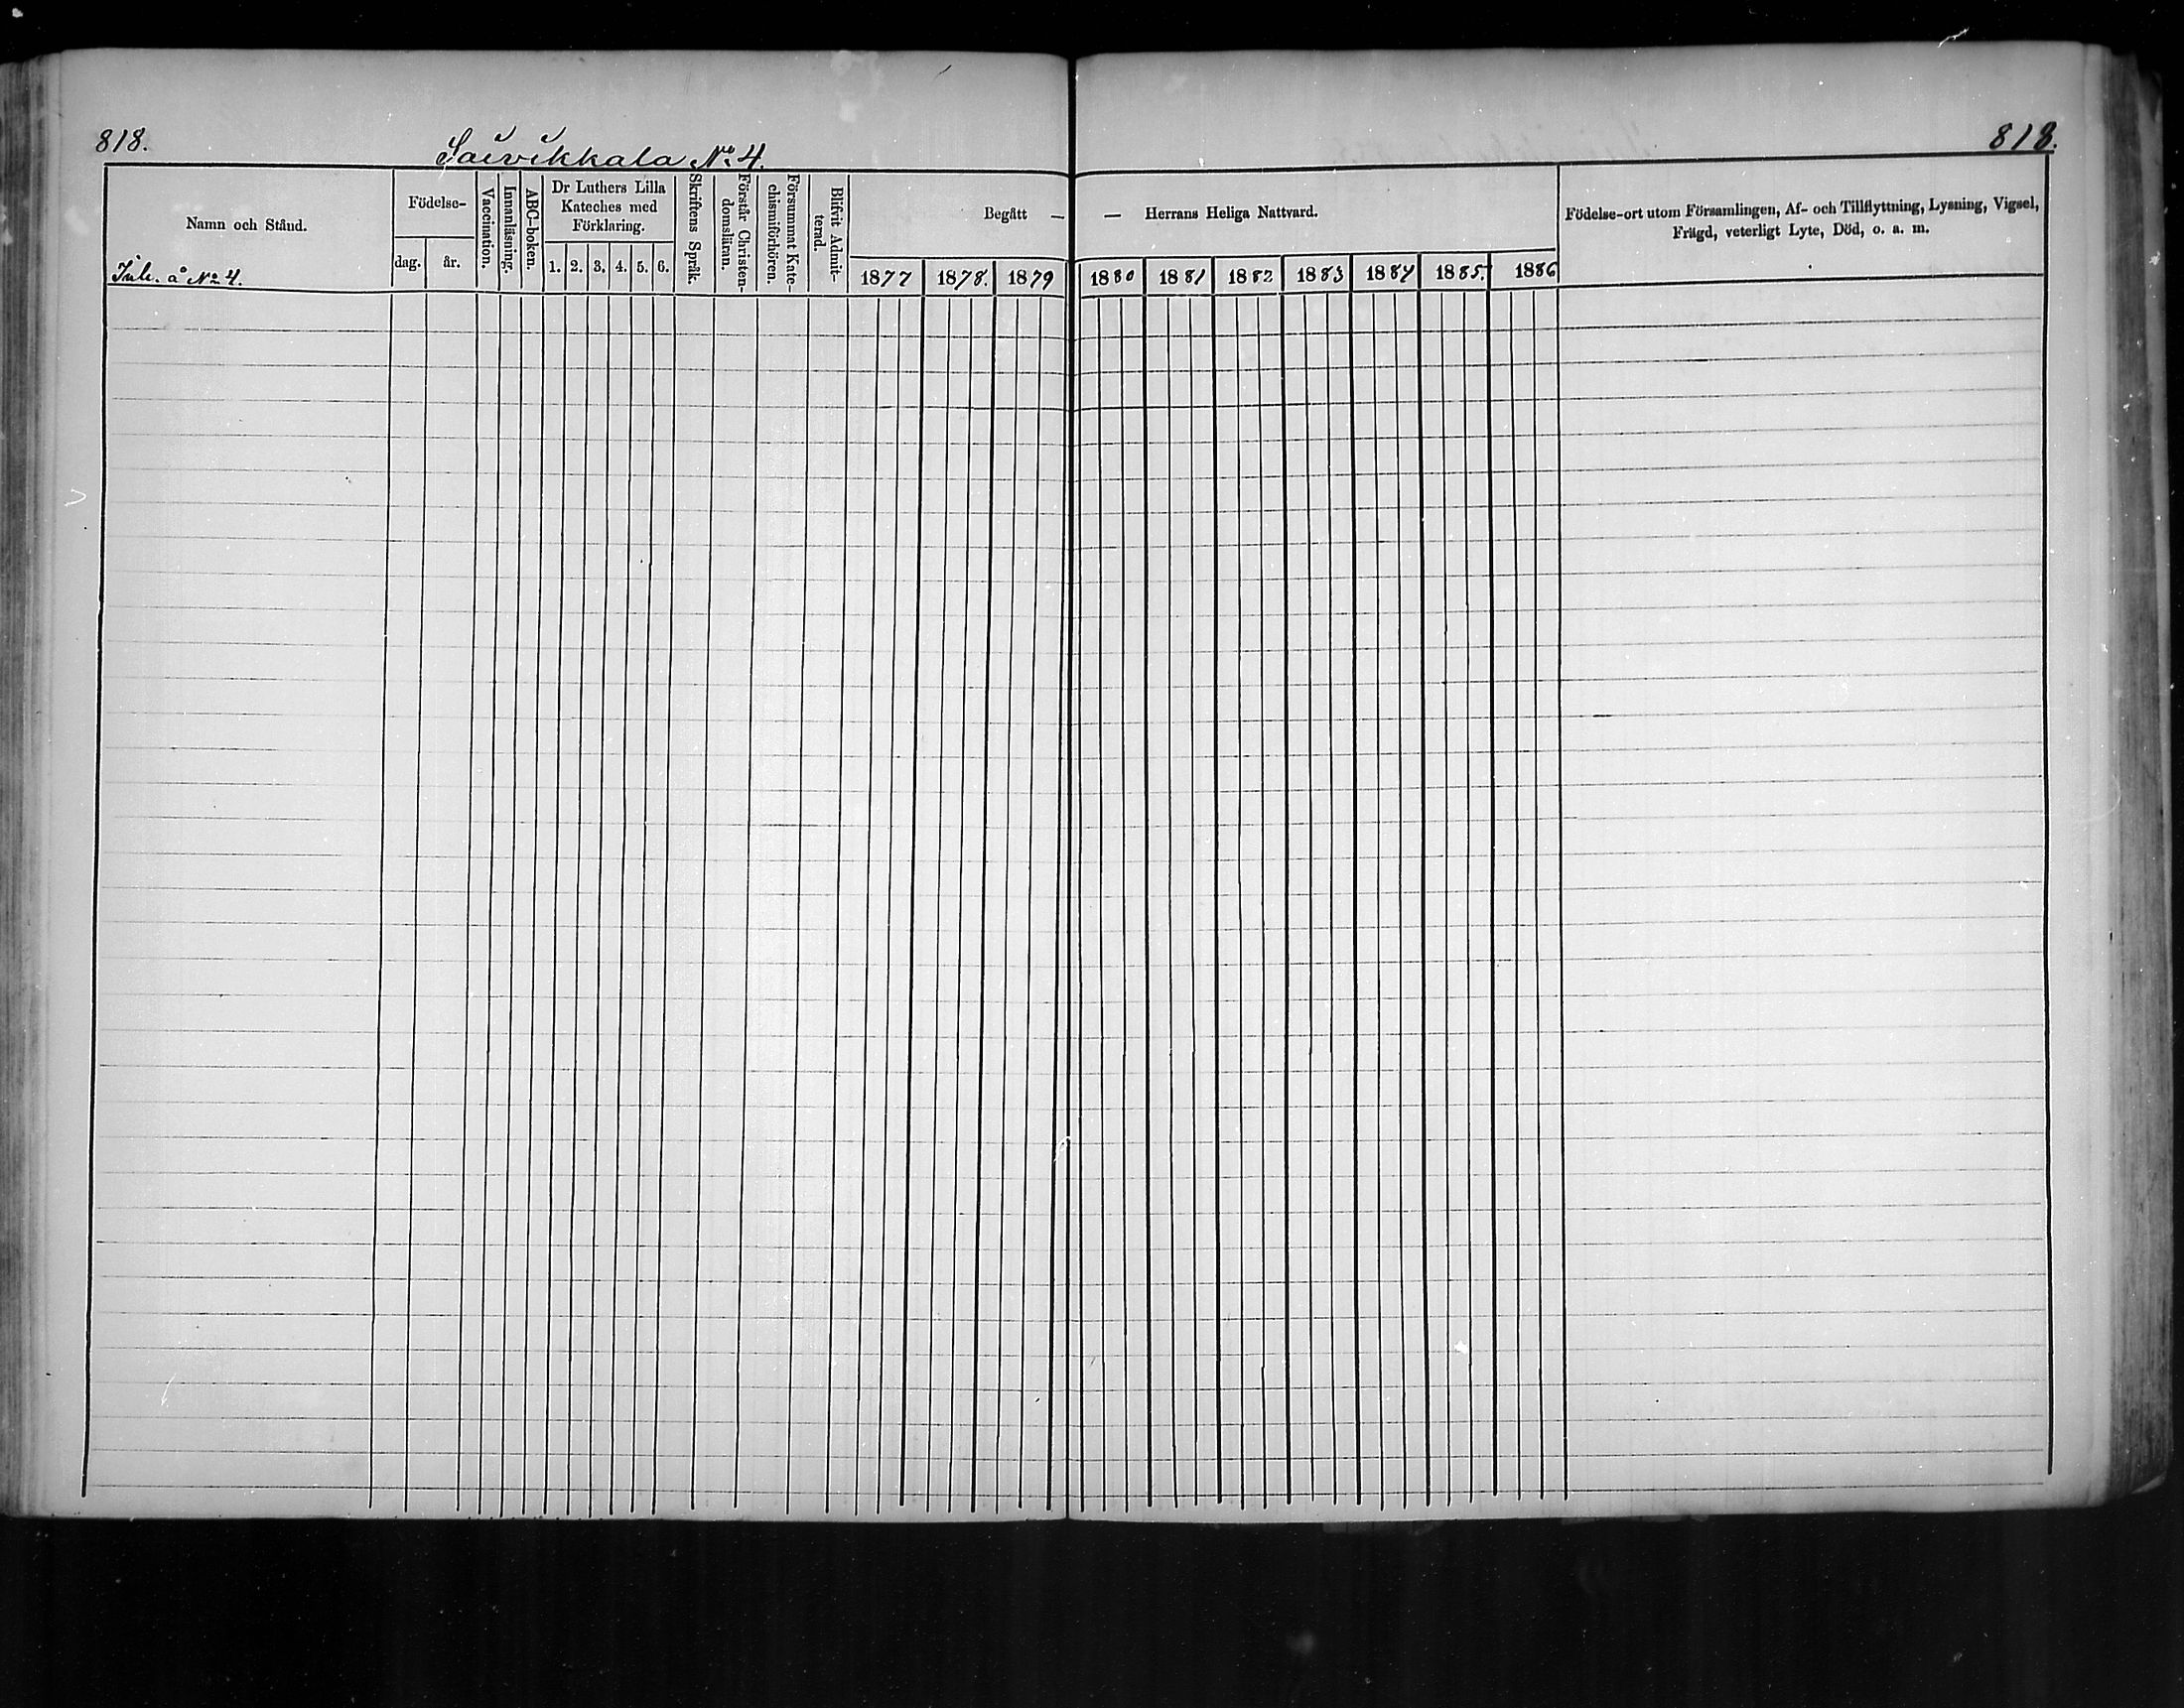 818.
Saivikkala No 4.
818.
Namn och Stånd.
Födelse-
dag.
år.
Vaccination.
Innanläsning.
ABC-boken.
Dr Luthers Lilla
Kateches med
Förklaring.
1. 2. 3. 4. 5. 6.
Skriftens Språk.
Förstår Christen-
domsläran.
Försummat Kate
chismiförhören.
Blifvit Admit-
terad.
Begått — — Herrans Heliga Nattvard.
1877 1878. 1879 1880 1881 1882 1883 1884 1885. 1886
Födelse-ort utom Församlingen, Af- och Tillflyttning, Lysning, Vigsel,
Frägd, veterligt Lyte, Död, o. a. m.
Inh. å No 4.